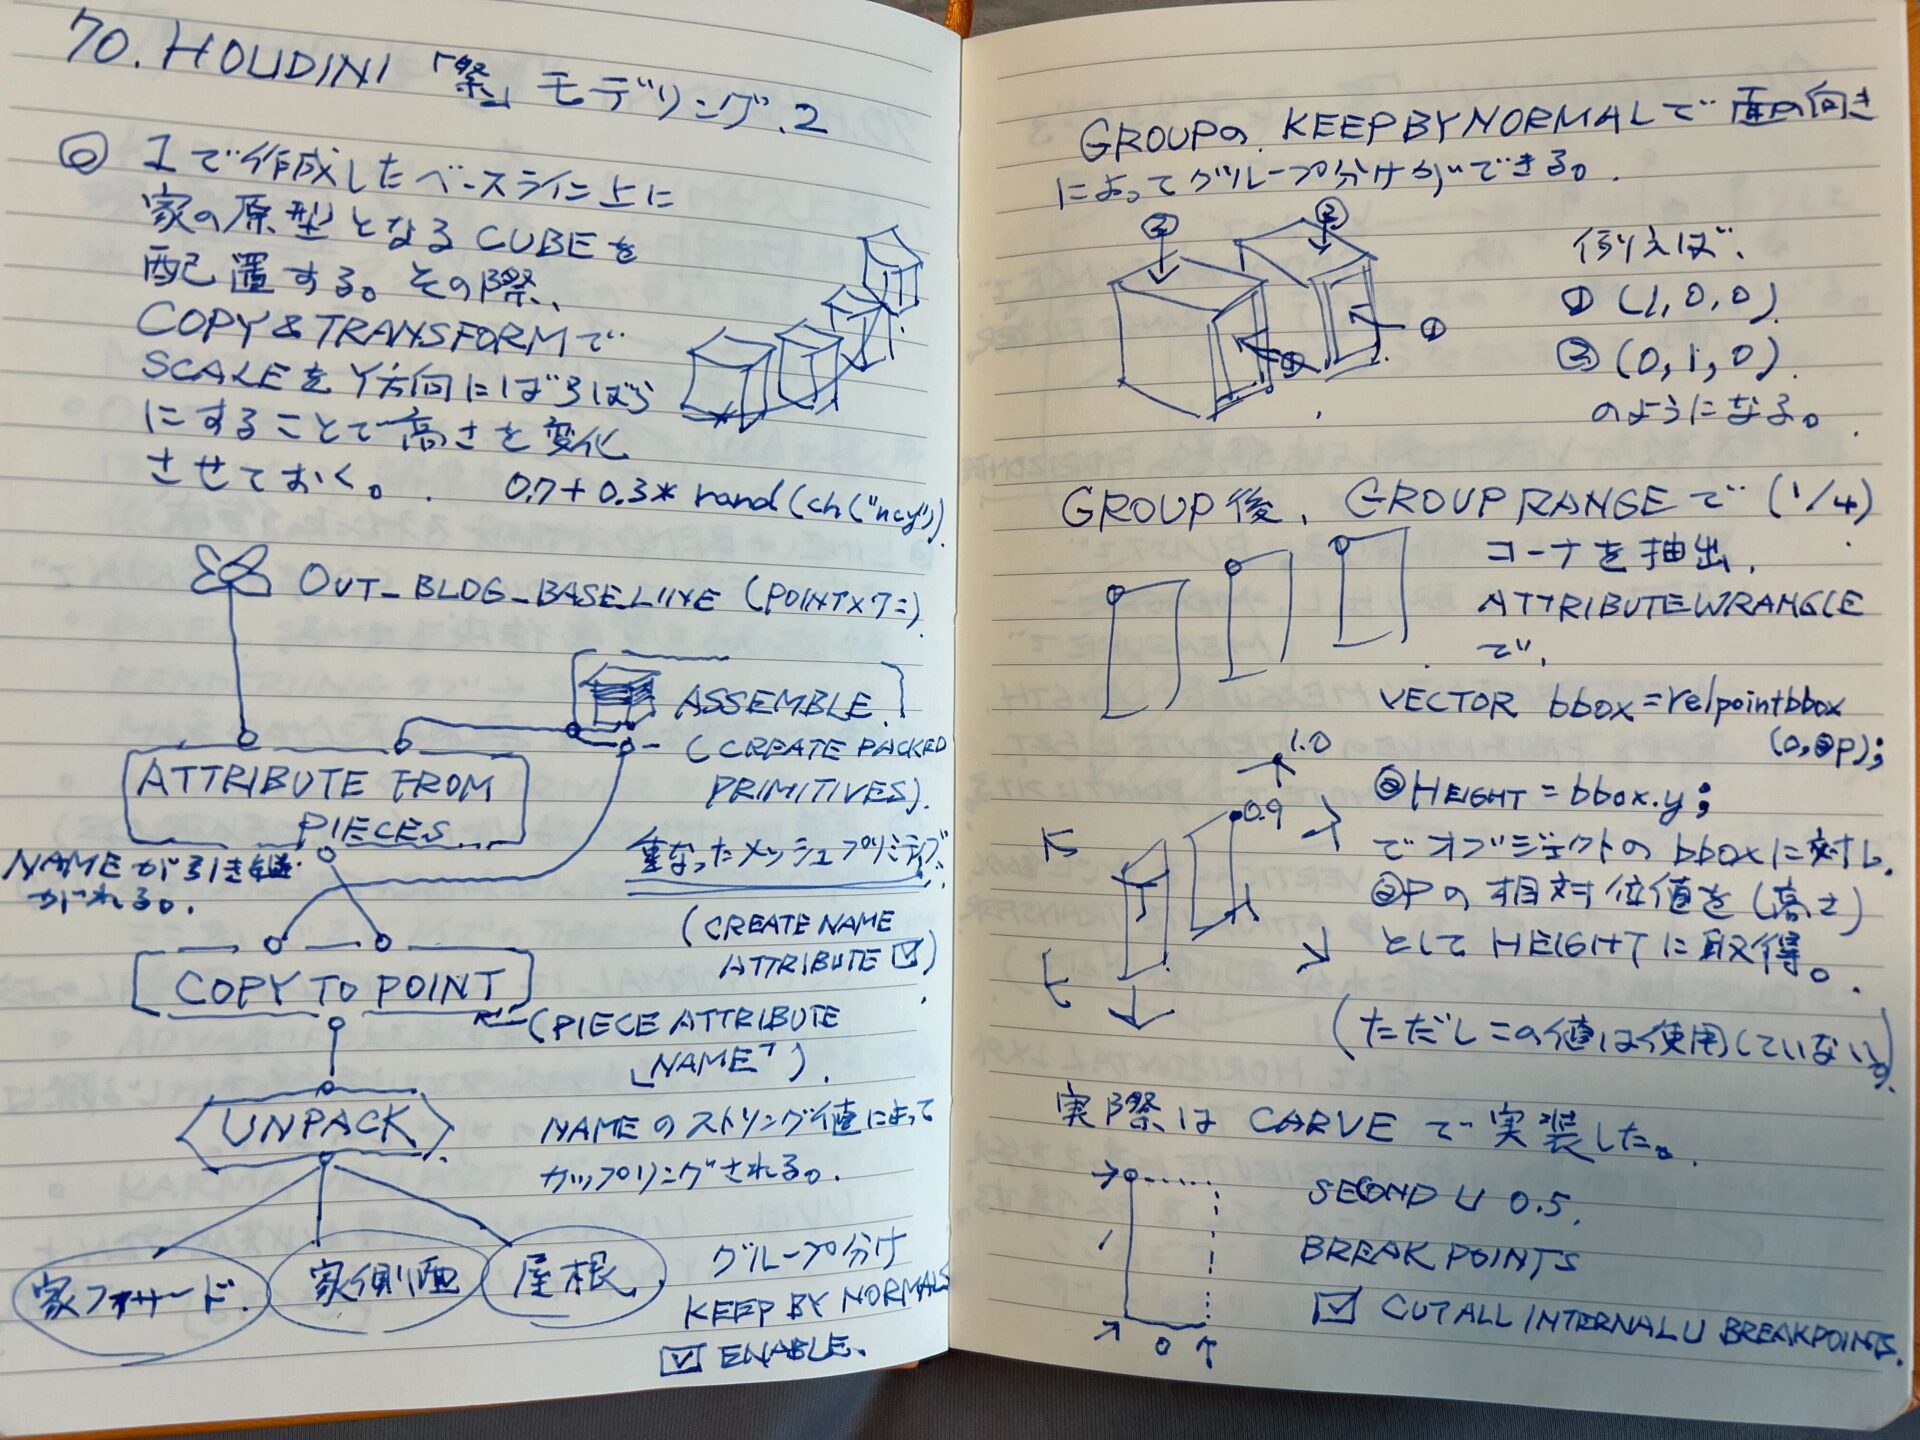 70. HOUDINI 「祭」モデリング.2
◎ 1で作成したベースライン上に
家の原型となるCUBEを
配置する。その際、
COPY&TRANSFORMで
SCALEをY方向にばらばら
にすることで高さを変化
させておく。
0.7+0.3*rand(ch("ncy"))
OUT_BLDG_BASELINE (POINT×7コ)
ASSEMBLE
(CREATE PACKED
PRIMITIVES).
ATTRIBUTE FROM
PIECES
NAMEが引き継
がれる。
重なったメッシュプリミティブ
(CREATE NAME
ATTRIBUTE ☑)
COPY TO POINT
(PIECE ATTRIBUTE
「NAME」).
UNPACK
NAMEのストリング値によって
カップリングされる。
家ファサード.
家側面
屋根
グループ分け
KEEP BY NORMALS
☑ ENABLE.
GROUPの KEEP BY NORMALで面の向き
によってグループ分けができる。
② ②
① ①
例えば、
① (1,0,0)
② (0,1,0)
のようになる。
GROUP後、GROUP RANGEで (1/4)
コーナを抽出、
ATTRIBUTEWRANGLE
で、
VECTOR bbox=relpointbbox
(0,@P);
1.0
0.9
@HEIGHT=bbox.y;
でオブジェクトのbboxに対し、
@Pの相対位値を(高さ)
としてHEIGHTに取得。
(ただしこの値は使用していない)
実際はCARVEで実装した。
SECOND U 0.5.
BREAKPOINTS
☑ CUT ALL INTERNAL U BREAKPOINTS.
0